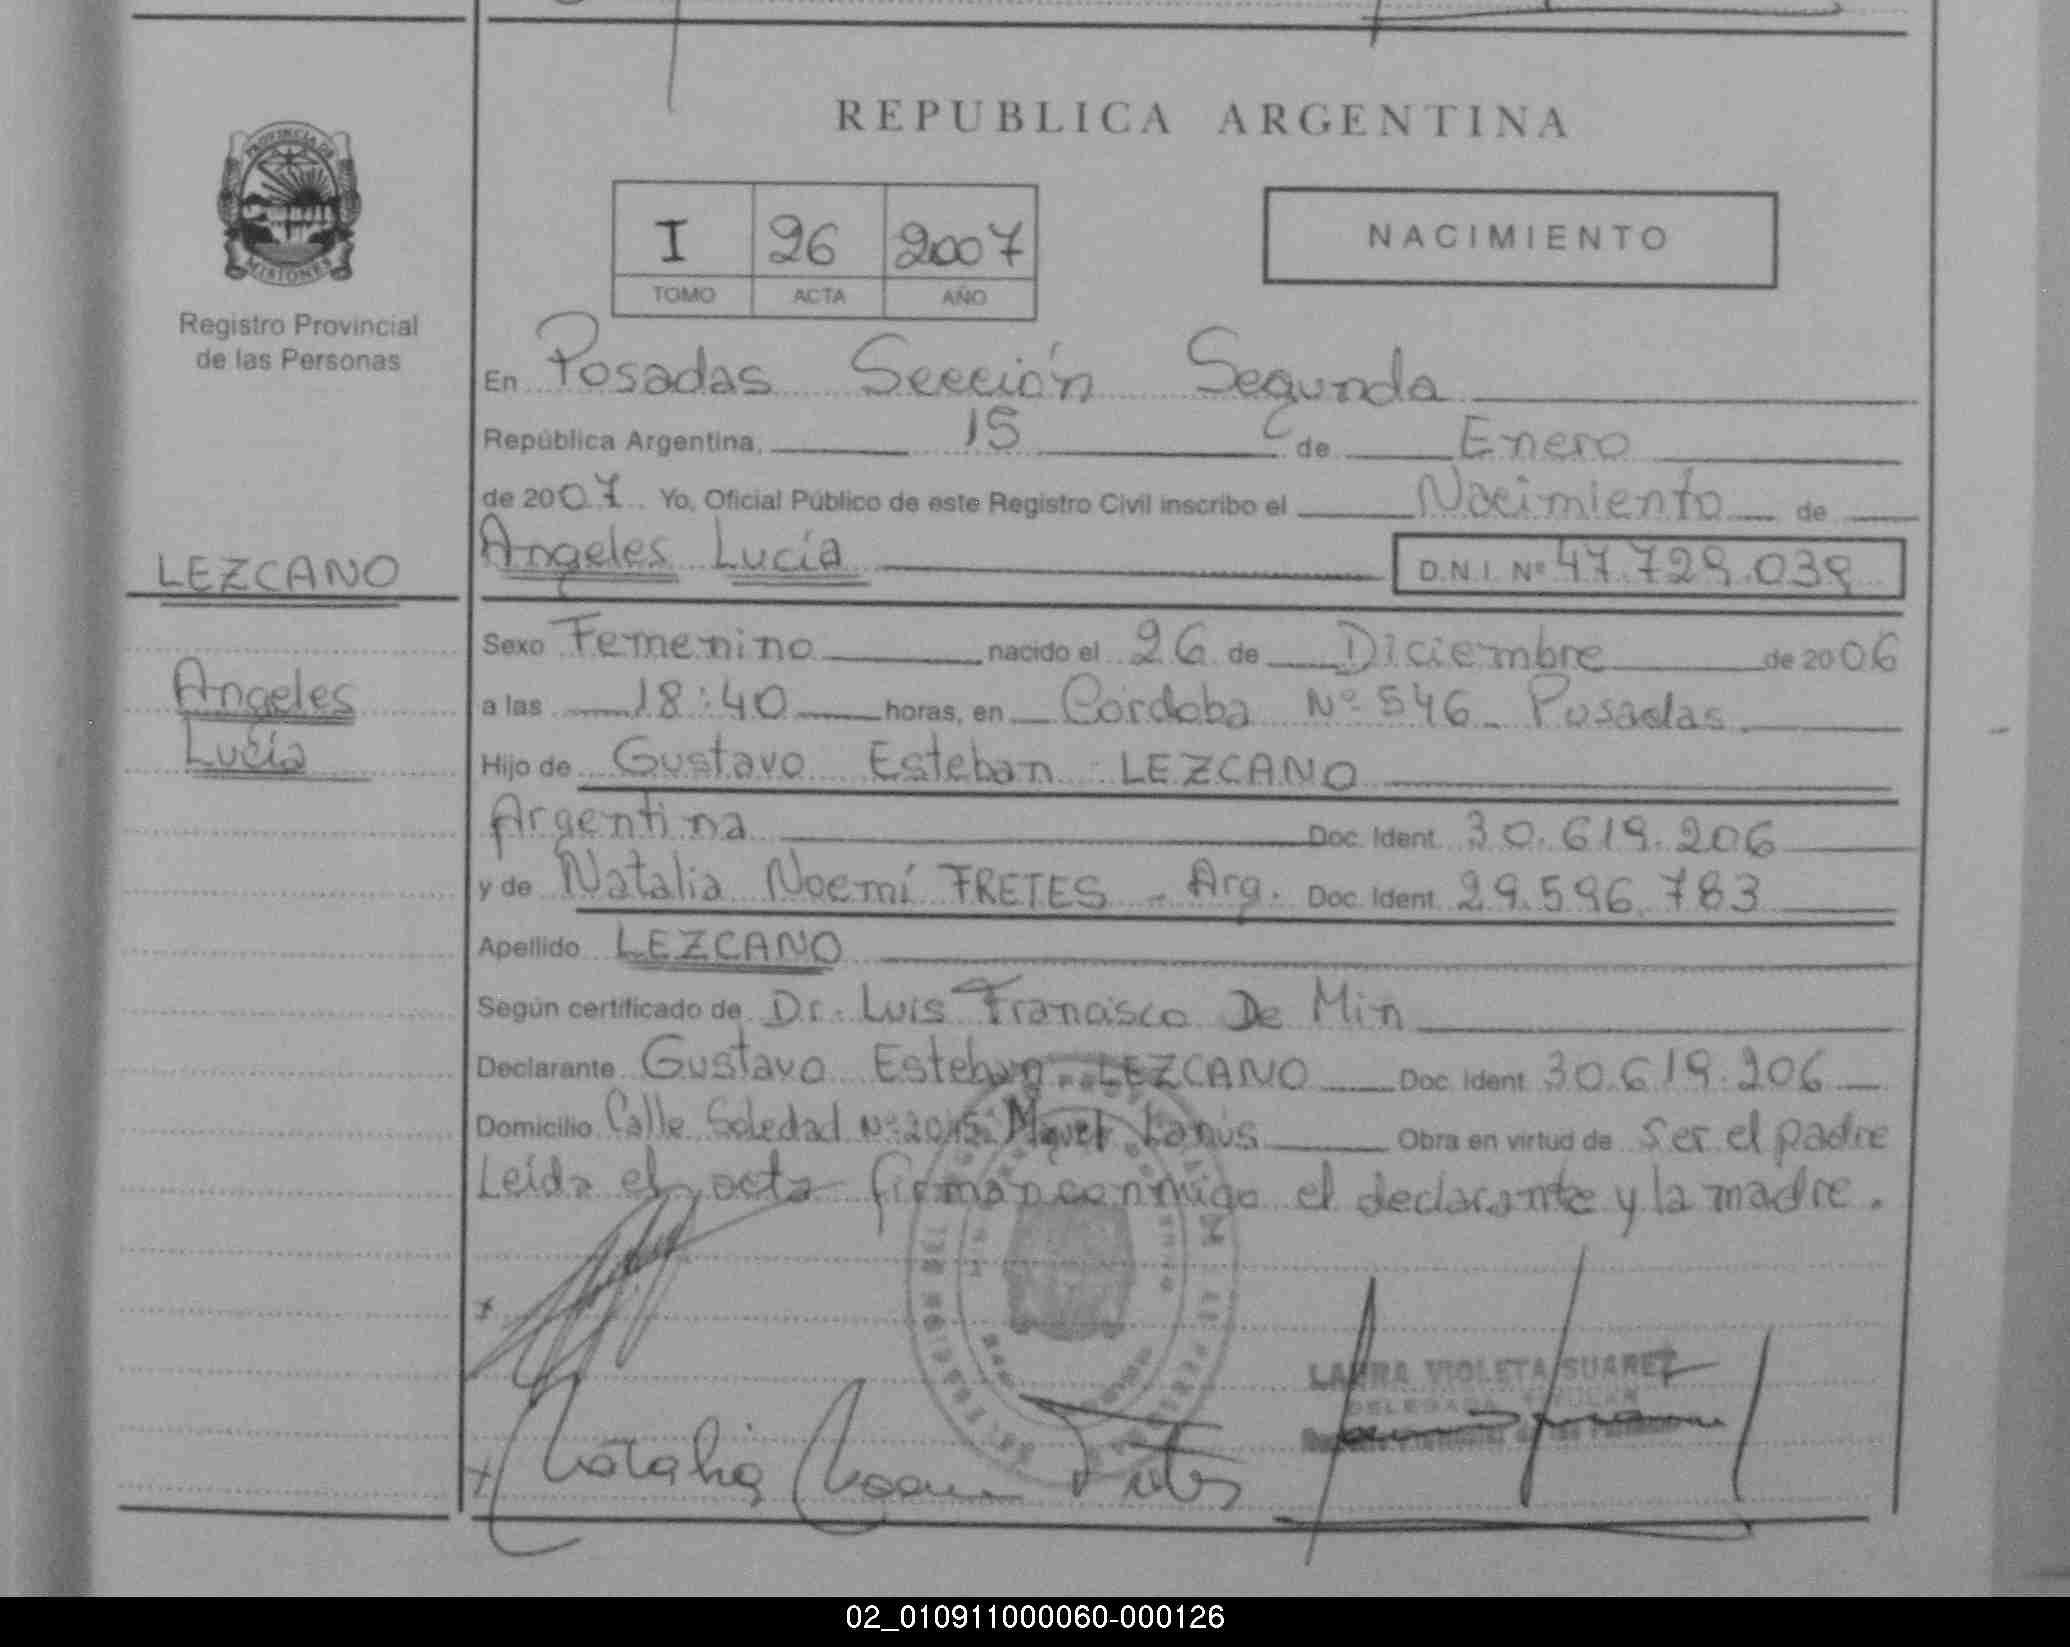 REPUBLICA ARGENTINA
PROVINCIA DE
MISIONES
Registro Provincial
de las Personas
I 26 2007
TOMO ACTA AÑO
NACIMIENTO
En Posadas Sección Segunda
República Argentina, 15 de Enero
de 2007 Yo, Oficial Público de este Registro Civil inscribo el Nacimiento de
LEZCANO
Angeles Lucía D.N.I. Nº 47.729.039
Sexo Femenino nacido el 26 de Diciembre de 2006
Angeles
a las 18:40 horas, en Córdoba Nº 546 Posadas
Lucía
Hijo de Gustavo Esteban LEZCANO
Argentina Doc. Ident. 30.619.206
y de Natalia Noemí FRETES - Arg. Doc. Ident. 29.596.783
Apellido LEZCANO
Según certificado de Dr. Luis Francisco De Min
Declarante Gustavo Esteban LEZCANO Doc. Ident. 30.619.206
Domicilio Calle Soledad Nº 2045 Miguel Lanús Obra en virtud de ser el padre
Leída el acta firman conmigo el declarante y la madre.
LAURA VIOLETA SUAREZ
DELEGADA TITULAR
Natalia Noemi Fretes
02_010911000060-000126